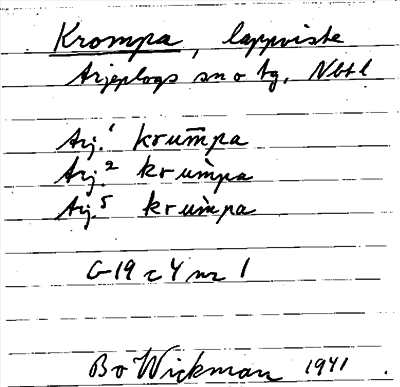 Krompa, lappviste
Arjeplogs sn o tg, Nbtl
Arj.¹ krum̄pa
Arj.² krum̀pa
Arj.⁵ krum̀pa
G-19 c 4 nr 1
Bo Wickman 1941.